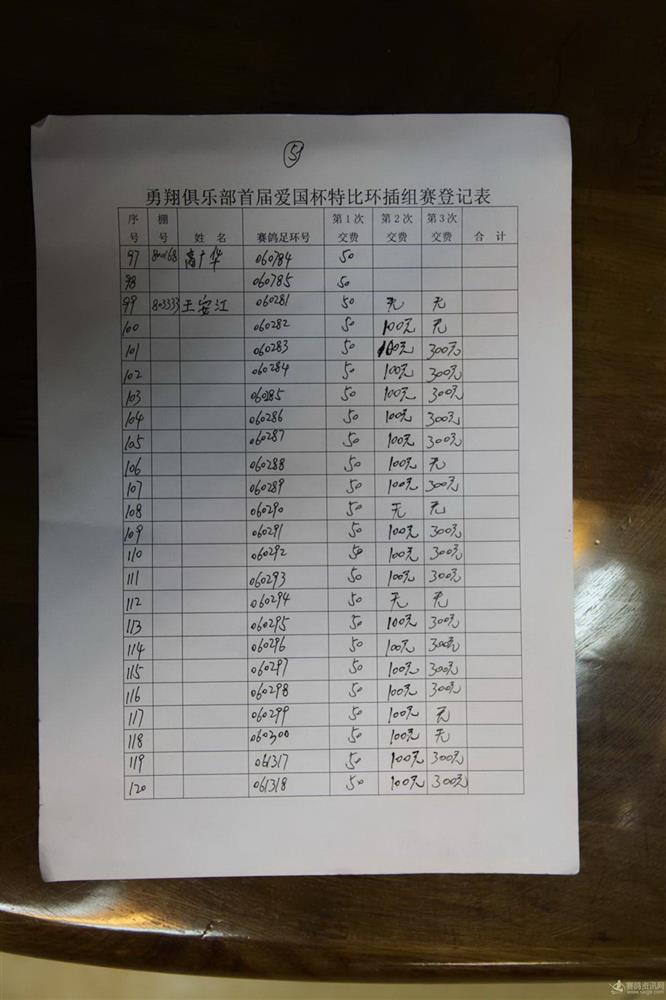 5
勇翔俱乐部首届爱国杯特比环插组赛登记表
序号 棚号 姓名 赛鸽足环号 第1次交费 第2次交费 第3次交费 合计
97 800168 高广华 060784 50
98 060785 50
99 803333 王安江 060281 50 无 无
100 060282 50 100元 无
101 060283 50 100元 300元
102 060284 50 100元 300元
103 060285 50 100元 300元
104 060286 50 100元 300元
105 060287 50 100元 300元
106 060288 50 100元 无
107 060289 50 100元 300元
108 060290 50 无 无
109 060291 50 100元 300元
110 060292 50 100元 300元
111 060293 50 100元 300元
112 060294 50 无 无
113 060295 50 100元 300元
114 060296 50 100元 300元
115 060297 50 100元 300元
116 060298 50 100元 300元
117 060299 50 100元 无
118 060300 50 100元 无
119 061317 50 100元 300元
120 061318 50 100元 300元
赛鸽资讯网